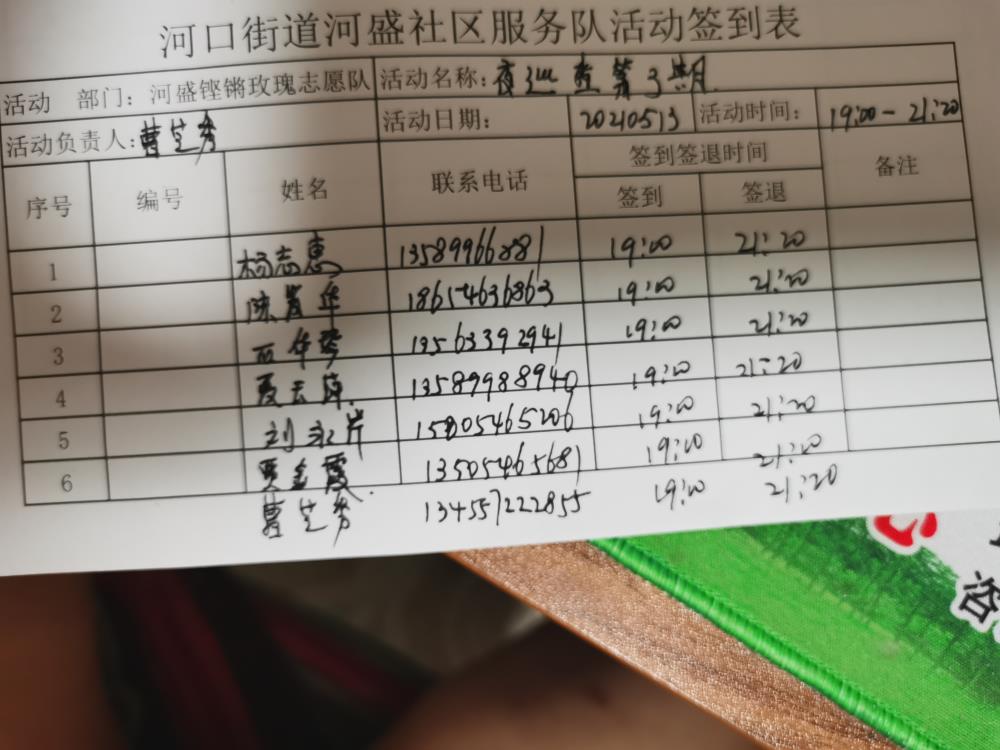 河口街道河盛社区服务队活动签到表
活动 部门：河盛铿锵玫瑰志愿队 活动名称：夜巡查第3期
活动负责人：曹芝秀 活动日期： 20240513 活动时间： 19:00-21:20
序号 编号 姓名 联系电话 签到签退时间 备注
签到 签退
1 杨志惠 13589966881 19:00 21:20
2 18654636863 19:00 21:20
3 13563392941 19:00 21:20
4 13589988940 19:00 21:20
5 15805465206 19:00 21:20
6 贾金霞 13505465681 19:00 21:20
曹芝秀 134557222855 19:00 21:20